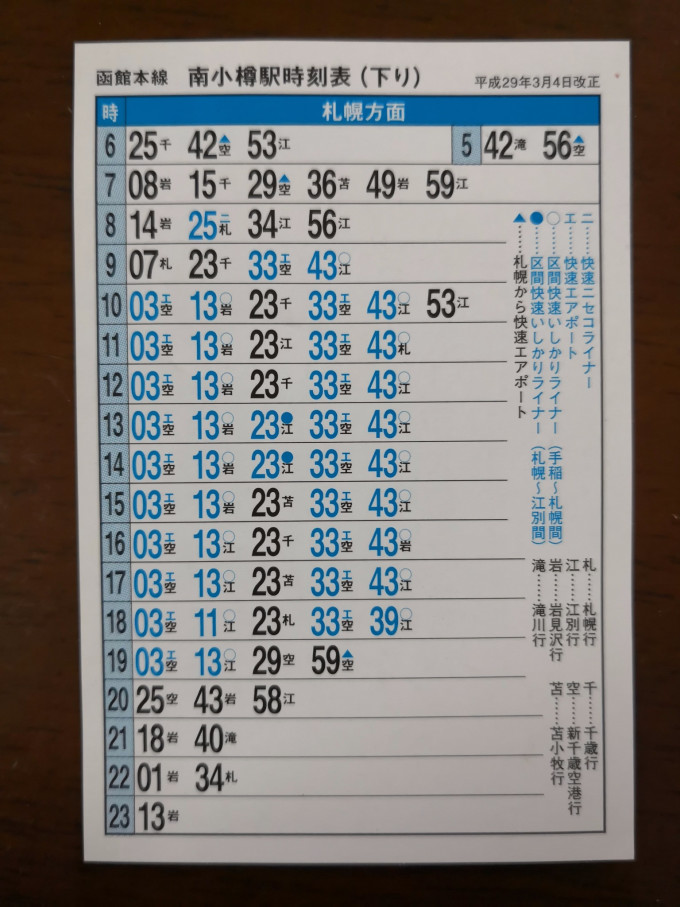 函館本線 南小樽駅時刻表(下り) 平成29年3月4日改正
時 札幌方面
6 25千 42▲空 53江 5 42滝 56▲空
7 08岩 15千 29▲空 36苫 49岩 59江
8 14岩 25ニ札 34江 56江
9 07札 23千 33エ空 43○江
10 03エ空 13○岩 23千 33エ空 43○江 53江
11 03エ空 13○岩 23江 33エ空 43○札
12 03エ空 13○岩 23千 33エ空 43○江
13 03エ空 13○岩 23●江 33エ空 43○江
14 03エ空 13○岩 23●江 33エ空 43○江
15 03エ空 13○岩 23苫 33エ空 43○江
16 03エ空 13○江 23千 33エ空 43○岩
17 03エ空 13○江 23苫 33エ空 43○江
18 03エ空 11○江 23札 33エ空 39○江
19 03エ空 13○江 29空 59▲空
20 25空 43岩 58江
21 18岩 40滝
22 01岩 34札
23 13岩
ニ……快速ニセコライナー
エ……快速エアポート
○……区間快速いしかりライナー(手稲〜札幌間)
●……区間快速いしかりライナー(札幌〜江別間)
▲……札幌から快速エアポート
札……札幌行
江……江別行
岩……岩見沢行
滝……滝川行
千……千歳行
空……新千歳空港行
苫……苫小牧行